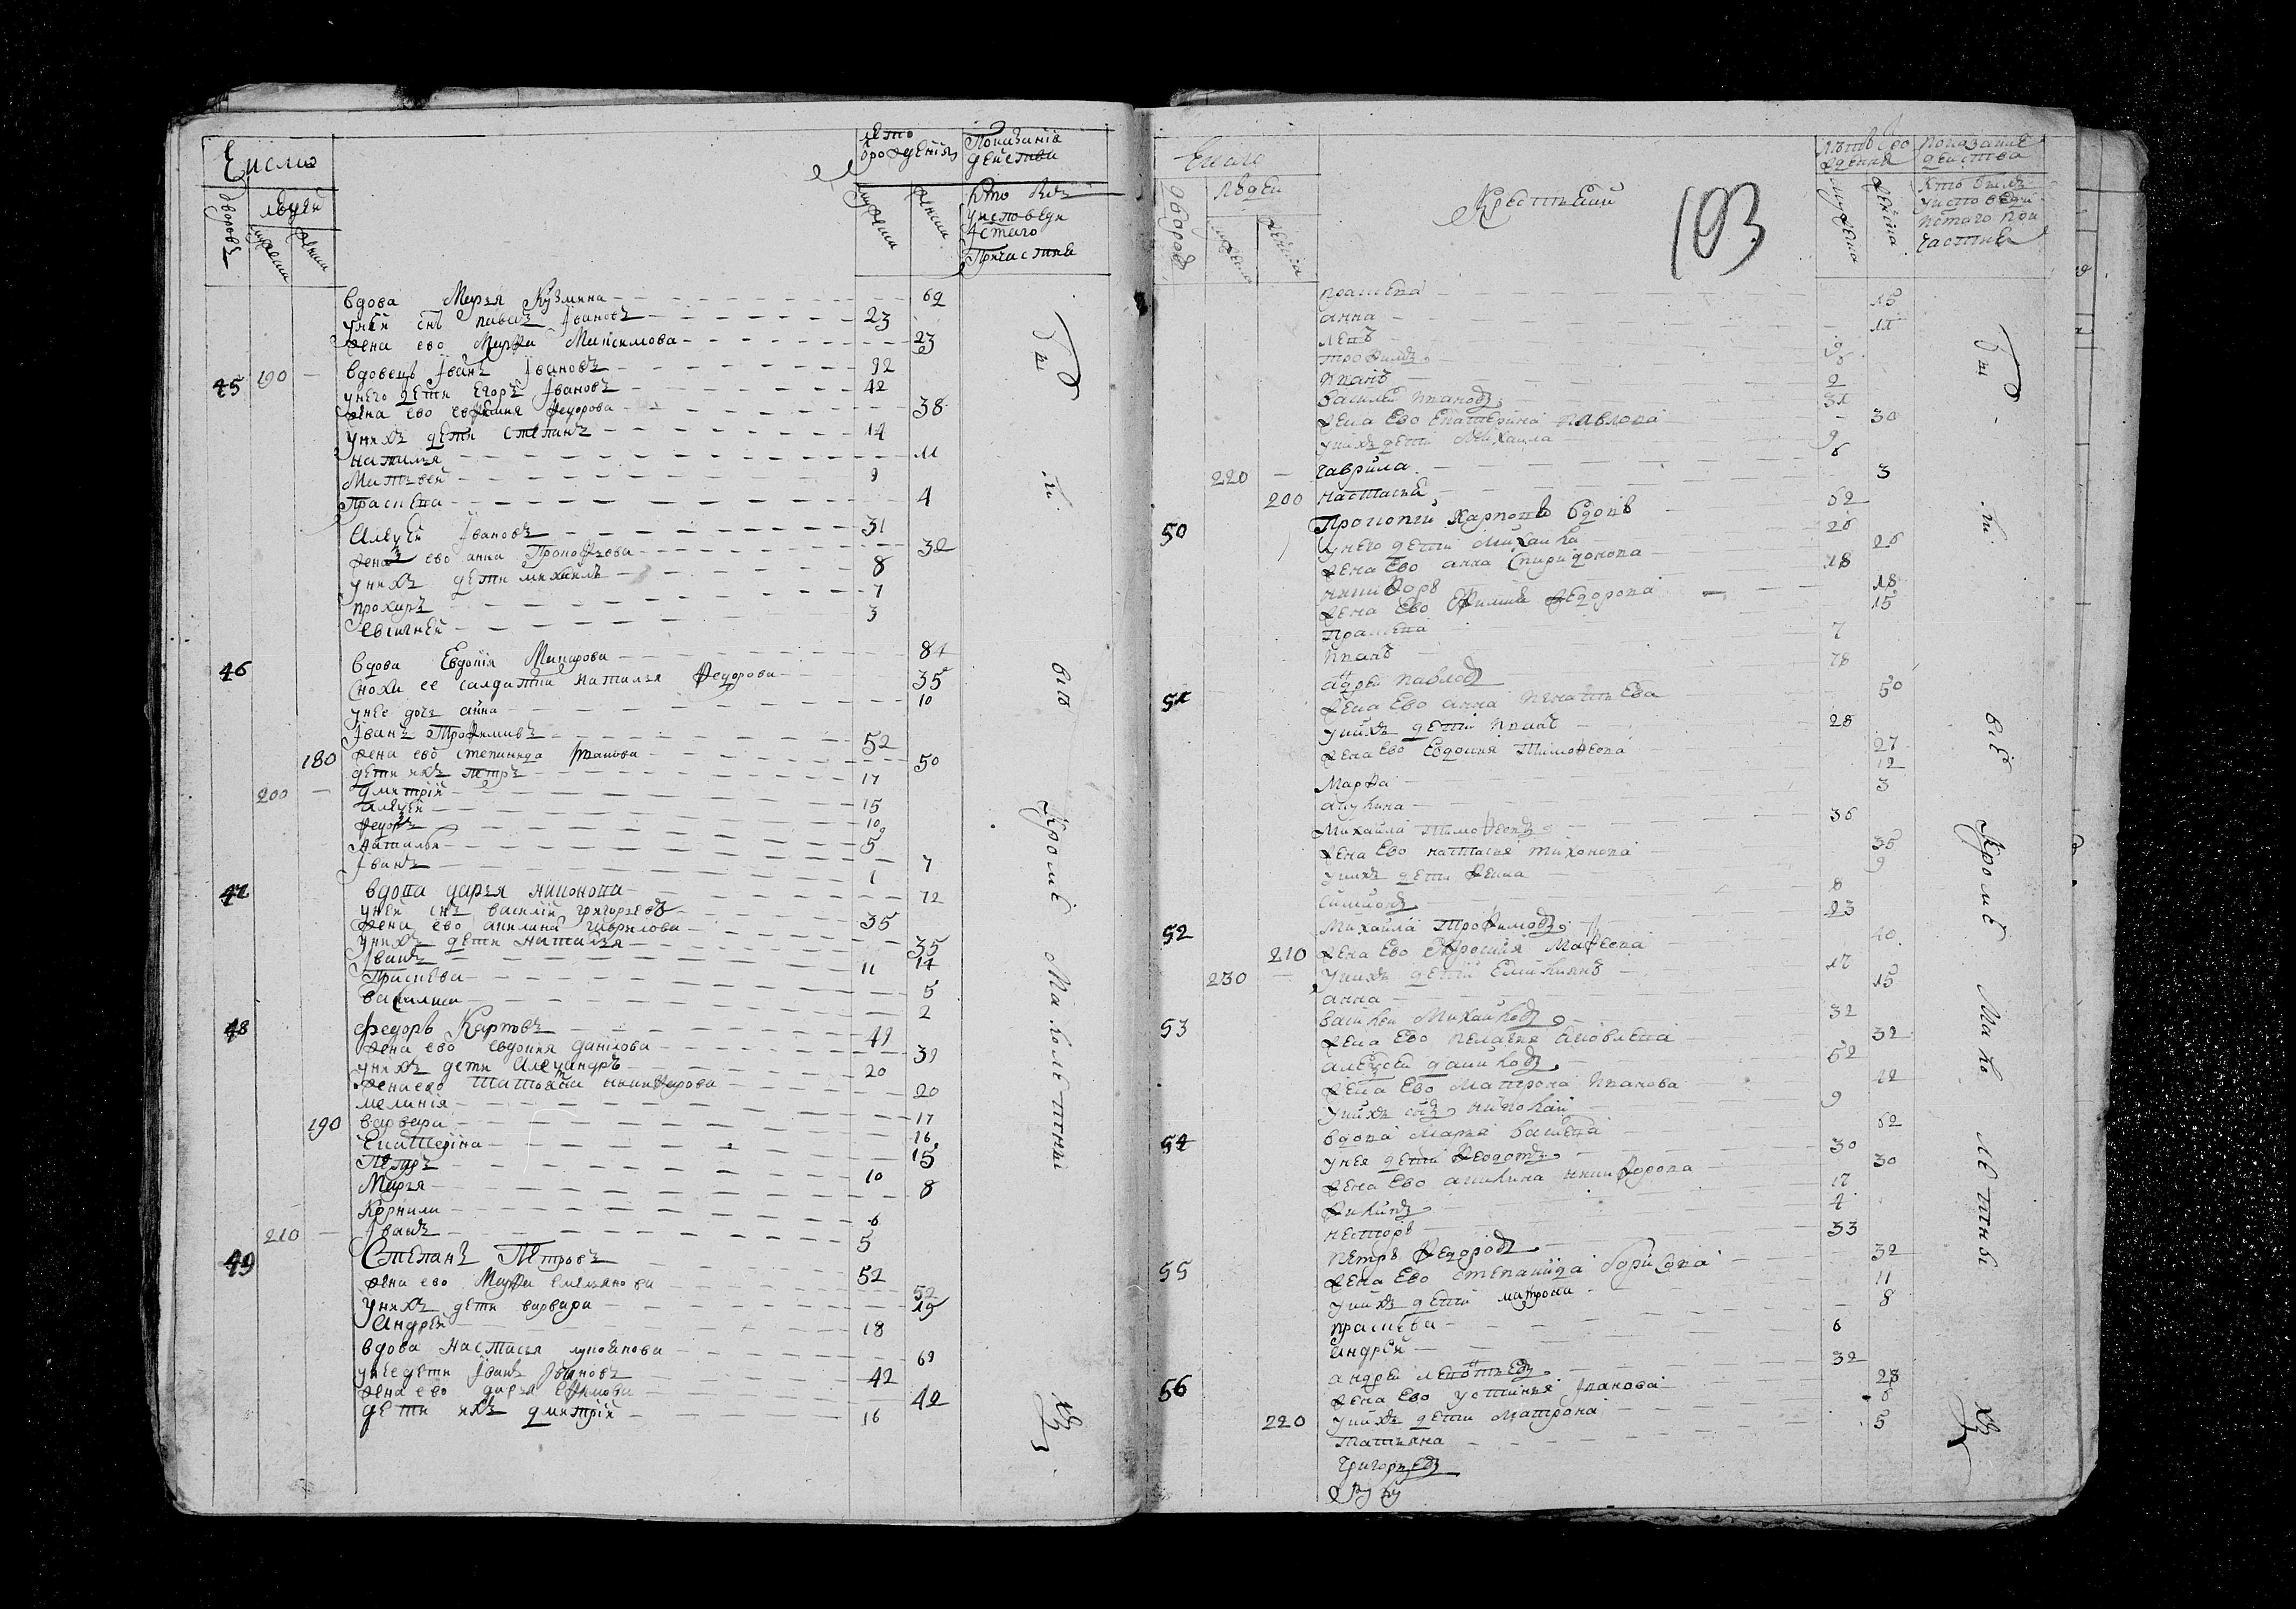 Число
лето
рождения
Показания
действа
дворовъ
людей
мужеска
женска
мужеска
женска
Кто былъ
у исповеди
и стаго
Причастия
вдова Марья Кузмина 62
у ней снъ павелъ Ивановъ 23
жена ево Марфа Максимова 23
45 190 вдовецъ Иванъ Ивановъ 92
у него дети Егоръ Ивановъ 42
жена ево евфимия Федорова 38
у нихъ дети степанъ 14
наталья 11
Матвей 9
Прасковья 4
Алексей Ивановъ 31
жена ево анна Прокофьева 32
у нихъ дети михайлъ 8
прохоръ 7
Евсигней 3
46 вдова Евдокия Макарова 84
сноха ее салдатка наталья Федорова 35
у нее дочь анна 10
Иванъ Трофимовъ 52
180 жена ево степанида Иванова 50
дети ихъ петръ 17
200 дмитрий 15
алексей 10
Федоръ 5
Наталья 7
Иванъ 1
47 вдова дарья никонова 72
у ней снъ василий григорьевъ 35
жена ево акилина гаврилова 35
у нихъ дети наталья 14
Иванъ 11
Прасковья 5
василиса 2
48 федоръ Карповъ 49
жена ево евдокия данилова 39
у нихъ дети Александръ 20
жена ево татьяна никифорова 20
мелания 17
190 варвара 16
Екатерина 15
Петръ 10
Марья 8
Корнила 6
210 Иванъ 5
49 Степанъ Петровъ 52
жена ево Марфа емельянова 52
у нихъ дети варвара 19
Андрей 18
вдова настасья лукоянова 69
у нее дети Иванъ Ивановъ 42
жена ево дарья ефимова 42
дети ихъ дмитрий 16
Вси
исповеди
Кроме Малолетныхъ
Число
дворовъ
людей
мужеска
женска
Крестьяне
103
летъ рождения
мужеска
женска
показание
действа
Кто былъ
у исповеди
и стаго при
частия
праскева 15
анна 11
левъ 9
трофимъ 6
иванъ 2
василий ивановъ 31
жена ево екатерина павлова 30
у нихъ дети михаила 9
220 гаврила 6
200 настасья 3
50 Прокопий Карповъ вдовъ 62
у него дети михаила 26
жена ево анна спиридонова 26
никифоръ 18
жена ево ефимия федорова 18
праскева 15
иванъ 7
51 андрей павловъ 78
жена ево анна игнатьева 50
у нихъ дети иванъ 28
жена ево евдокия тимофеева 27
марфа 12
акулина 3
михаила тимофеевъ 36
жена ево настасья тихонова 35
у нихъ дети фекла 9
симионъ 8
52 михаила трофимовъ 43
210 жена ево ефросиния матвеева 40
230 у нихъ дети емилианъ 17
анна 15
53 василей михайловъ 32
жена ево пелагея яковлева 32
алексей даниловъ 52
жена ево матрона иванова 42
у нихъ снъ николай 9
54 вдова марья васильева 62
у нея дети федотъ 30
жена ево акилина никифорова 30
филипъ 17
несторъ 4
55 петръ федоровъ 33
жена ево степанида борисова 32
у нихъ дети матрона 11
праскева 8
андрей 6
56 андрей леонтьевъ 32
жена ево устинья иванова 28
220 у нихъ дети матрона 8
татьяна 5
григорьевъ
Вси
Кроме Малолетныхъ